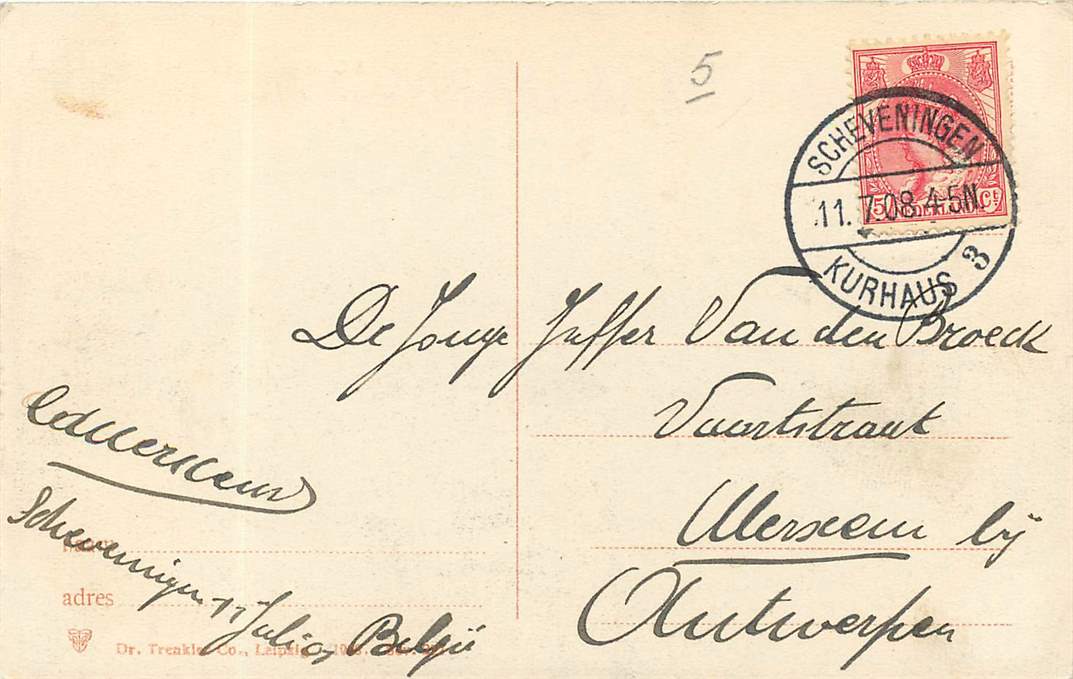 5
SCHEVENINGEN
11.7.08.4-5N.
KURHAUS 3
5 NEDERLAND Ct
De Jonge Juffer Van den Broeck
Vaartstraat
Merxem bij
Antwerpen
België
Scheveningen 11 Juli 08
adres
Dr. Trenkler Co., Leipzig